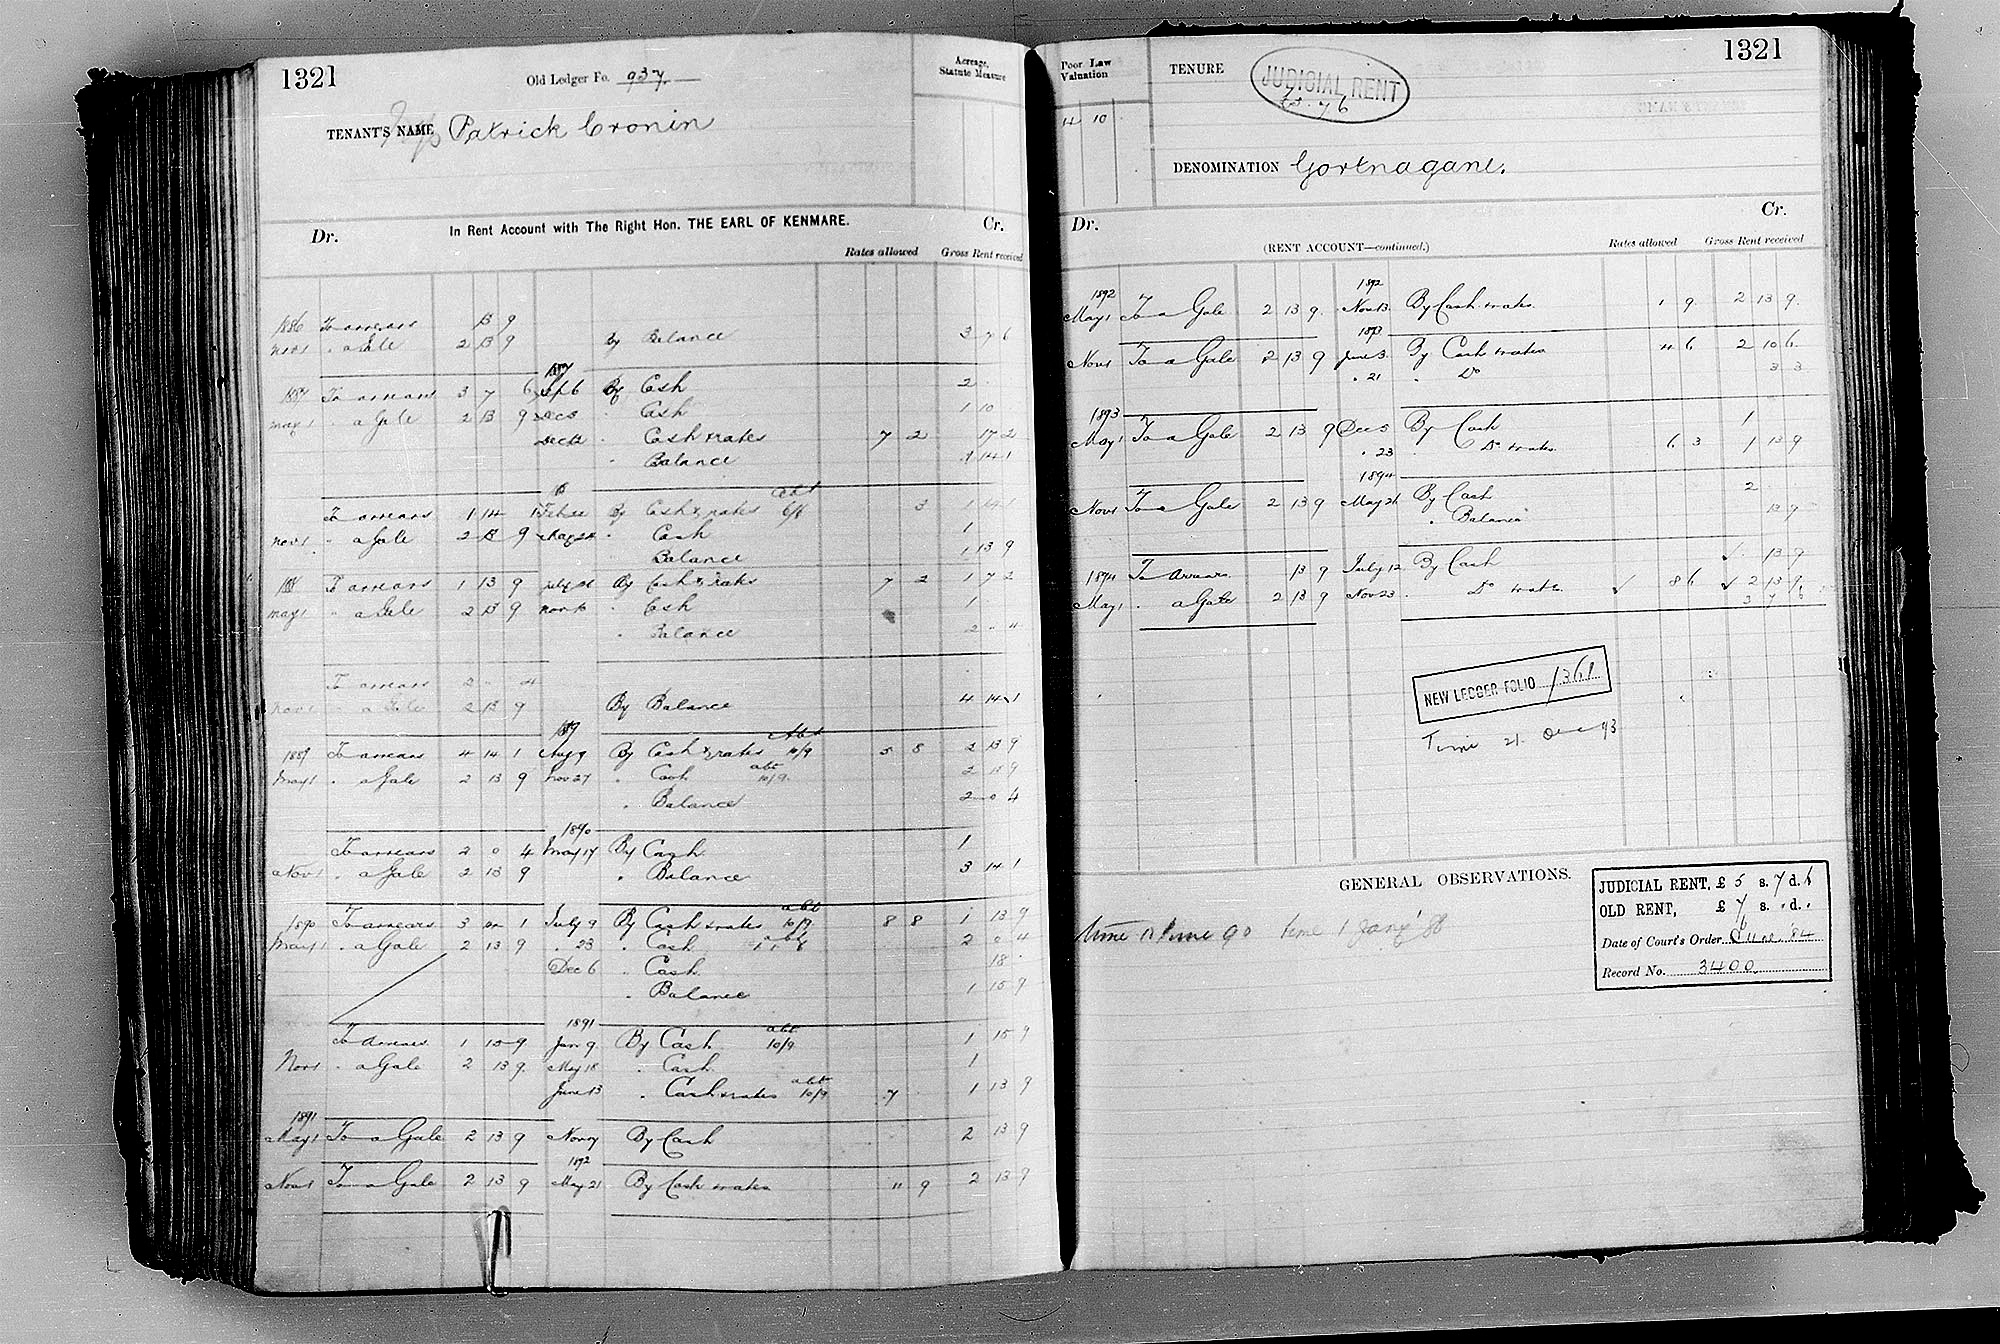 1321
Old Ledger Fo. 937
Acreage, Statute Measure
TENANT'S NAME Patrick Cronin
In Rent Account with The Right Hon. THE EARL OF KENMARE.
Dr. Cr.
Rates allowed Gross Rent received
1886 To arrears 13 9
Nov 1 " a Gale 2 13 9 By Balance 3 7 6
1887
1887 To arrears 3 7 6 Sept 6 By Cash 2
May 1 " a Gale 2 13 9 Dec 5 " Cash 1 10
Dec 12 " Cash & rates 7 2 17 2
" Balance 1 14 1
abt
To arrears 1 14 1 Feb 22 By Cash & rates 3 1 14 1
Nov 1 " a Gale 2 13 9 May 24 " Cash 1
Balance 1 13 9
1888 To arrears 1 13 9 July 26 By Cash & rates 7 2 1 7 2
May 1 " a Gale 2 13 9 Nov 10 " Cash 1
" Balance 2 " 4
To arrears 2 " 4
Nov 1 " a Gale 2 13 9 By Balance 4 14 1
1889 abt
1889 To arrears 4 14 1 Aug 9 By Cash & rates 10/9 5 8 2 13 9
May 1 " a Gale 2 13 9 Nov 27 " Cash abt 10/9 2 13 9
" Balance 2 0 4
1890
To arrears 2 0 4 May 17 By Cash 1
Nov 1 " a Gale 2 13 9 " Balance 3 14 1
1890 To arrears 3 14 1 July 9 By Cash & rates abt 10/9 8 8 1 13 9
May 1 " a Gale 2 13 9 " 23 " Cash abt 2 0 4
Dec 6 " Cash 18
" Balance 1 15 9
1891
To arrears 1 15 9 Jan 9 By Cash abt 10/9 1 15 9
Nov 1 " a Gale 2 13 9 May 18 " Cash 1
June 13 " Cash & rates abt 10/9 7 1 13 9
1891
May 1 To a Gale 2 13 9 Nov 7 By Cash 2 13 9
1892
Nov 1 To a Gale 2 13 9 May 21 By Cash & rates 11 9 2 13 9
Poor Law Valuation
4 10
TENURE JUDICIAL RENT
5.7.6
1321
DENOMINATION Gortnagane.
Dr. Cr.
(RENT ACCOUNT—continued.)
Rates allowed Gross Rent received
1892 1892
May 1 To a Gale 2 13 9 Nov 13 By Cash & rates 1 9 2 13 9
1893
Nov 1 To a Gale 2 13 9 June 3 By Cash & rates 4 6 2 10 6
" 21 " Do 3 3
1893
May 1 To a Gale 2 13 9 Dec 5 By Cash 1
" 23 " Do & rates 6 3 1 13 9
1894
Nov 1 To a Gale 2 13 9 May 26 By Cash 2
" Balance 13 9
1894 To arrears 13 9 July 12 By Cash 13 9
May 1 " a Gale 2 13 9 Nov 23 " Do & rates 8 6 2 13 9
3 7 6
NEW LEDGER FOLIO 1361
Time 21 Dec 93
GENERAL OBSERVATIONS.
time 11 June 90 time 1 Jany '88
JUDICIAL RENT, £ 5 s. 7 d. 6
OLD RENT, £ 7 s. " d. "
Date of Court's Order 84
Record No. 3400